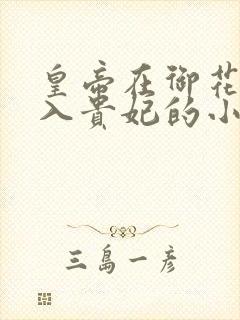 皇帝在御花
入贵妃的小
三島一彦